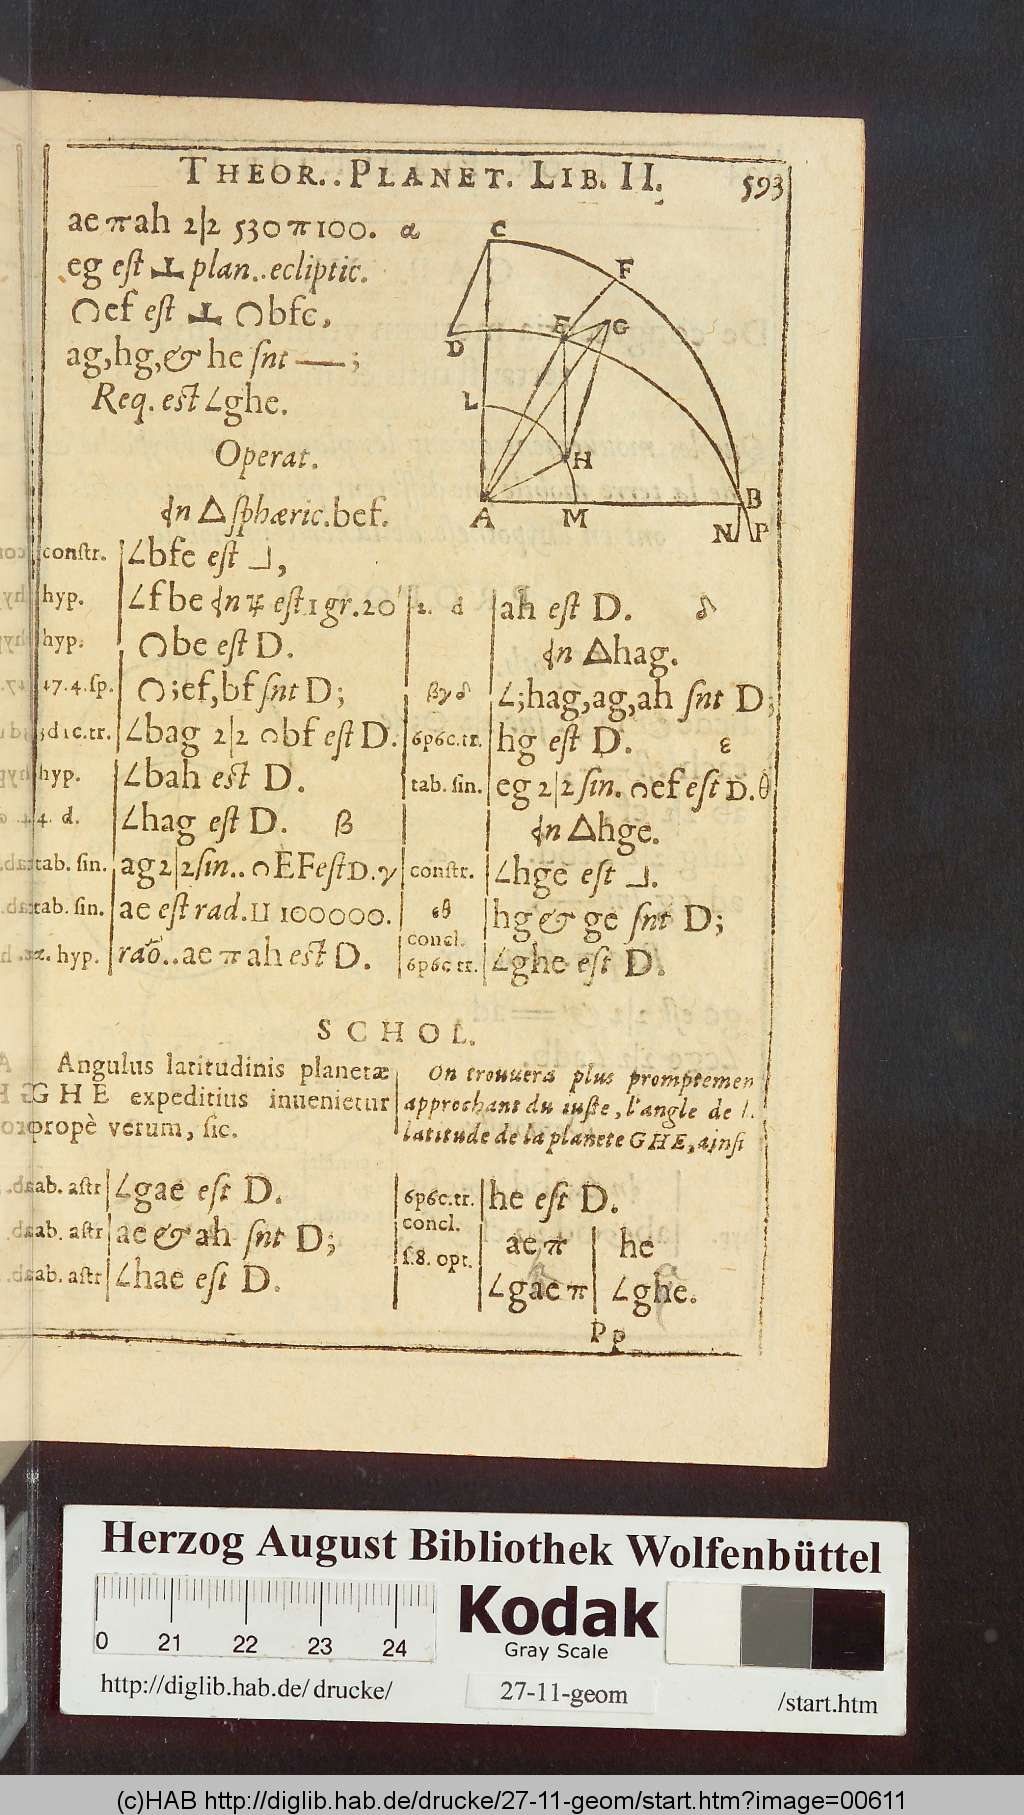 THEOR.. PLANET. LIB. II.
593
ae π ah 2|2 530 π 100. α
eg est ⊥ plan..ecliptic.
◠ef est ⊥ ◠bfc,
ag,hg,& he snt —;
Req. est ∠ghe.
Operat.
C
F
E
G
D
L
H
A
M
B
N
P
In △ sphæric.bef.
constr. | ∠bfe est ⅃,
hyp. | ∠fbe In ♃ est 1 gr. 20'
hyp. | ◠be est D.
47.4.sp. | ◠;ef,bf snt D;
d1c.tr. | ∠bag 2|2 ◠bf est D.
hyp. | ∠bah est D.
4. d. | ∠hag est D. β
tab. sin. | ag 2|2 sin.. ◠EF est D. γ
tab. sin. | ae est rad. II 100000.
hyp. | rāo..ae π ah est D.
2. d | ah est D. δ
In △hag.
βγδ | ∠;hag,ag,ah snt D;
6p6c.tr. | hg est D. ε
tab. sin. | eg 2|2 sin. ◠ef est D. θ
In △hge.
constr. | ∠hge est ⅃.
εθ | hg & ge snt D;
concl.
6p6c tr. | ∠ghe est D.
SCHOL.
Angulus latitudinis planetæ
GHE expeditius inuenietur
propè verum, sic.
On trouuera plus promptemen
approchant du iuste, l'angle de l.
latitude de la planete GHE, ainsi
ab. astr | ∠gae est D.
ab. astr | ae & ah snt D;
ab. astr | ∠hae est D.
6p6c.tr. | he est D.
concl.
f.8. opt. | ae π | he
∠gae π | ∠ghe.
Pp
Herzog August Bibliothek Wolfenbüttel
0 21 22 23 24
Kodak
Gray Scale
http://diglib.hab.de/ drucke/
27-11-geom
/start.htm
(c)HAB http://diglib.hab.de/drucke/27-11-geom/start.htm?image=00611